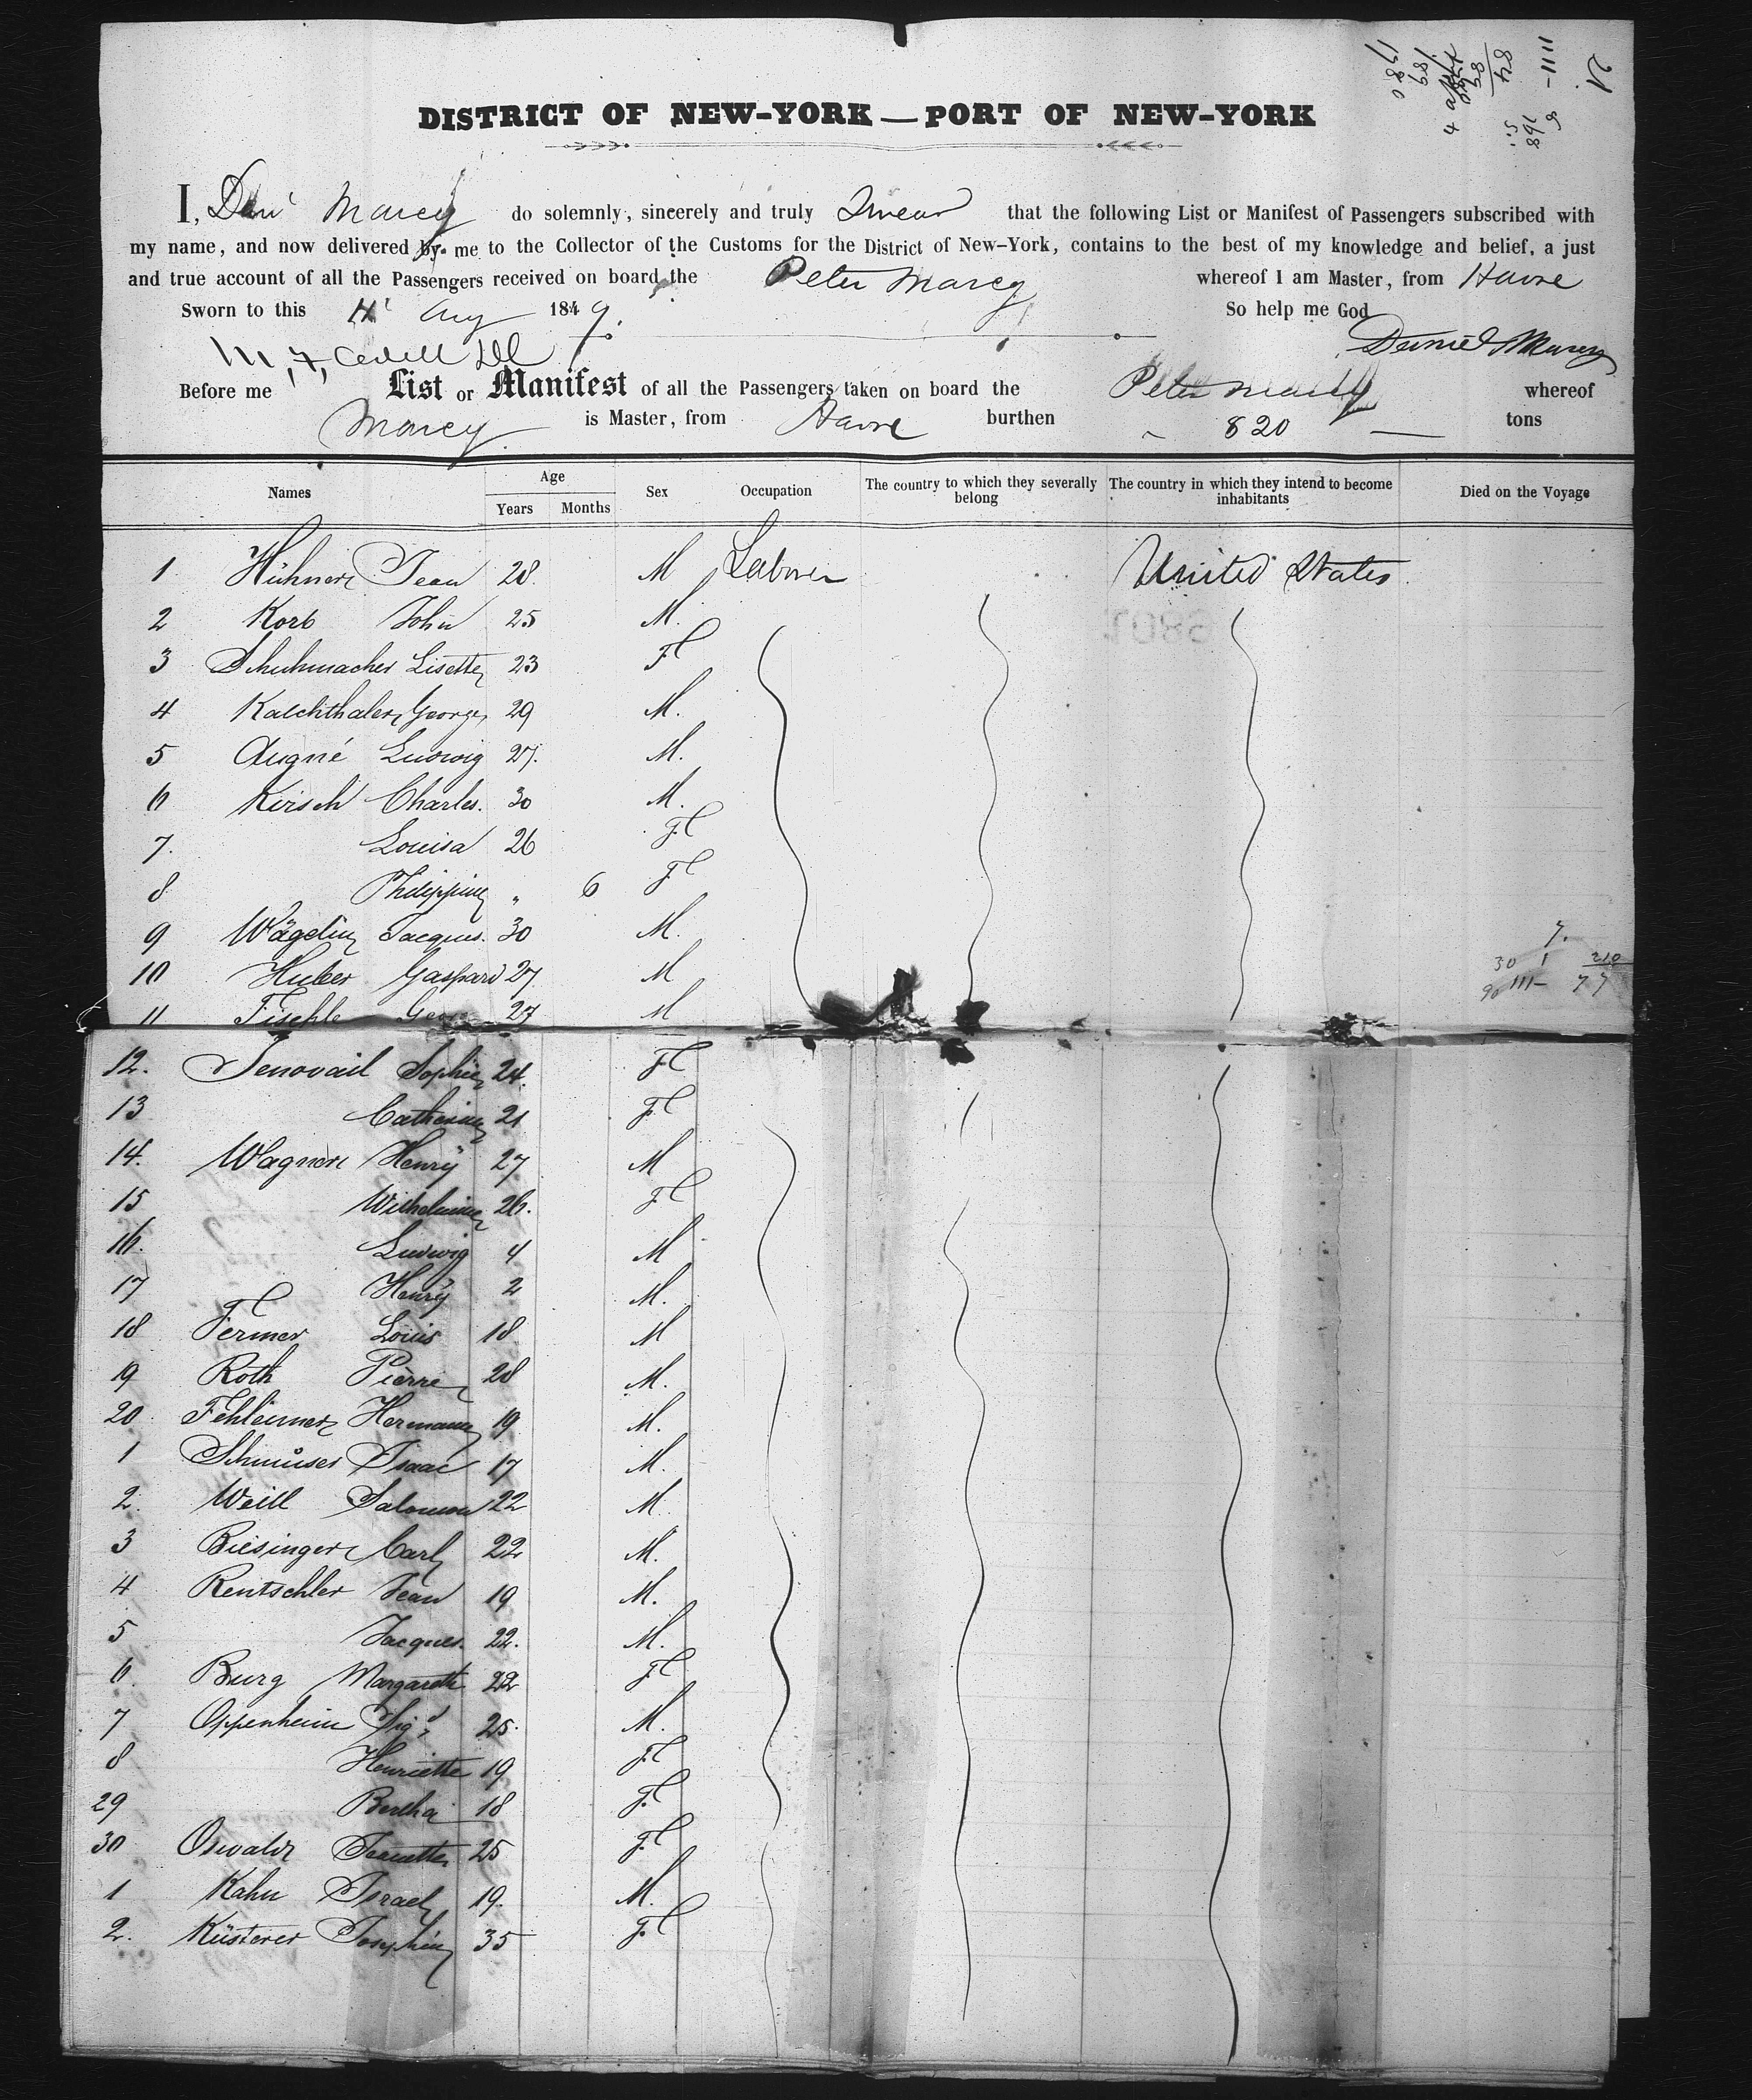 DISTRICT OF NEW-YORK — PORT OF NEW-YORK
I, Danl Marcy do solemnly, sincerely and truly Swear that the following List or Manifest of Passengers subscribed with
my name, and now delivered by me to the Collector of the Customs for the District of New-York, contains to the best of my knowledge and belief, a just
and true account of all the Passengers received on board the Peter Marcy whereof I am Master, from Havre
Sworn to this Aug 1849. So help me God
Daniel Marcy
Before me List or Manifest of all the Passengers taken on board the Peter Marcy whereof
Marcy is Master, from Havre burthen 820 tons
Names Age Years Months Sex Occupation The country to which they severally belong The country in which they intend to become inhabitants Died on the Voyage
1 Hühner Jean 28. M Laborer United States.
2 Korb John 25 M.
3 Schuhmacher Lisette 23 Fl
4 Kalchthaler George 29 M.
5 Augné Ludwig 27. M.
6 Kirsch Charles. 30 M.
7. Louisa 26 Fl
8 Philippine " 6 Fl
9 Wägelin Jacques. 30 M.
10 Huber Gaspard 27 M
11 Fischle 27 M
12. Jenovail Sophie 24. Fl
13 Catherine 21 Fl
14. Wagner Henry 27 M
15 Wilhelmine 26. Fl
16. Ludwig 4 M
17 Henry 2 M.
18 Fermer Louis 18 M
19 Roth Pierre 28 M.
20 Fehleimer Hermann 19 M.
1 Schmuser Isaac 17 M.
2. Weill Salomon 22 M.
3 Biesinger Carl 22 M.
4 Rentschler Jean 19 M.
5 Jacques. 22. M.
6. Burg Margareth 22 Fl
7 Oppenheim Sigd 25. M.
8 Henriette 19 Fl
29 Bertha 18 F.
30 Oswald 25 Fl
1 Kahn Israel 19. M.
2. Küsterer Josephine 35 Fl